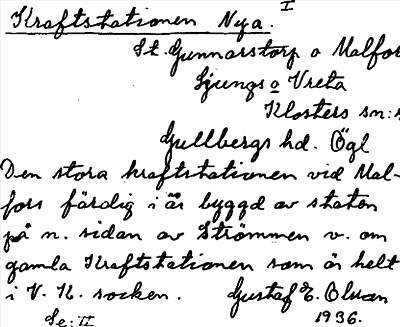 I
Kraftstationen Nya.
St. Gunnarstorp o Malfor
Ljungs o Vreta
Klosters sn:s
Gullbergs hd. Ögl
Den stora kraftstationen vid Mal-
fors färdig i år byggd av staten
på n. sidan av Strömmen v. om
gamla Kraftstationen som är helt
i V. K. socken. Gustaf E. Olsson
Se: II 1936.